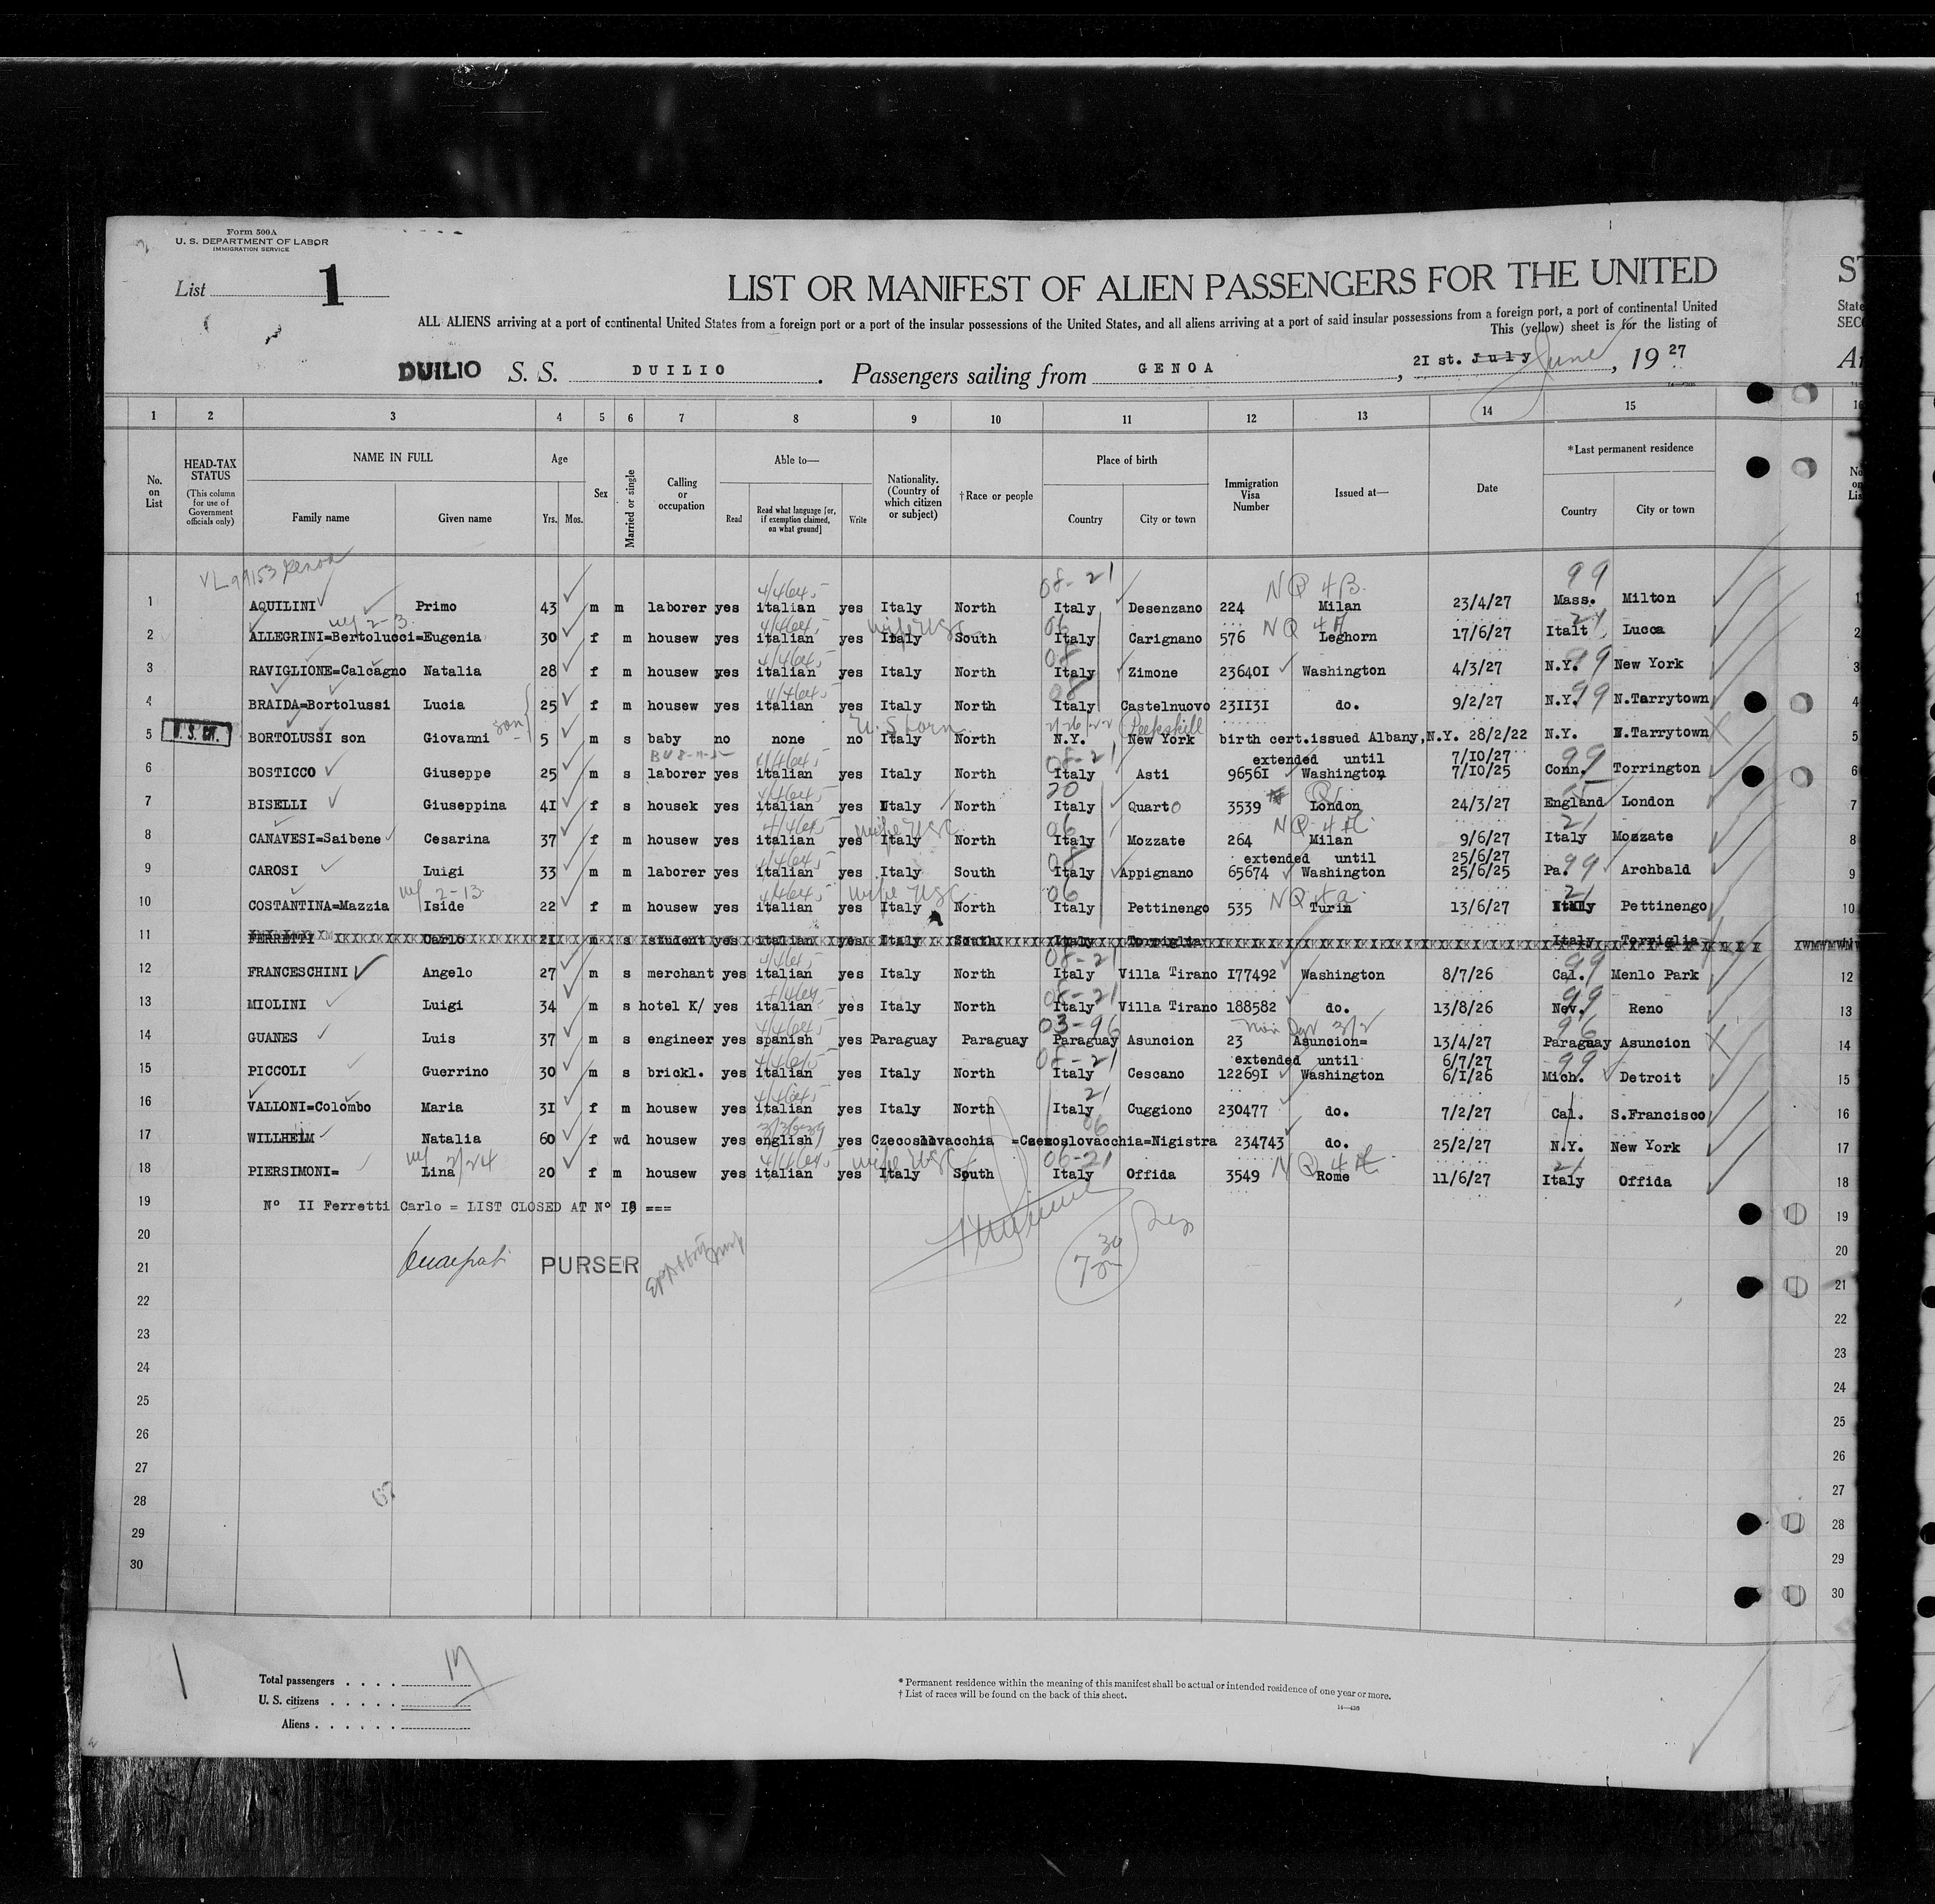 Form 500A
U. S. DEPARTMENT OF LABOR
IMMIGRATION SERVICE
List 1
LIST OR MANIFEST OF ALIEN PASSENGERS FOR THE UNITED ST
ALL ALIENS arriving at a port of continental United States from a foreign port or a port of the insular possessions of the United States, and all aliens arriving at a port of said insular possessions from a foreign port, a port of continental United State
This (yellow) sheet is for the listing of SEC
DUILIO S. S. DUILIO . Passengers sailing from GENOA , 21 st. July June , 19 27
1 2 3 4 5 6 7 8 9 10 11 12 13 14 15
No. on List
HEAD-TAX STATUS (This column for use of Government officials only)
NAME IN FULL Family name Given name
Age Yrs. Mos.
Sex
Married or single
Calling or occupation
Able to— Read Read what language [or, if exemption claimed, on what ground] Write
Nationality. (Country of which citizen or subject)
†Race or people
Place of birth Country City or town
Immigration Visa Number
Issued at—
Date
*Last permanent residence Country City or town
VL 99153 Genoa
4/4645 08-21 NQ 4 B. 99
1 AQUILINI Primo 43 m m laborer yes italian yes Italy North Italy Desenzano 224 Milan 23/4/27 Mass. Milton 1
2 ALLEGRINI=Bertolucci=Eugenia 30 f m housew yes italian yes Italy South Italy Carignano 576 Leghorn 17/6/27 Italt Lucca 2
3 RAVIGLIONE=Calcagno Natalia 28 f m housew yes italian yes Italy North Italy Zimone 23640I Washington 4/3/27 N.Y. New York 3
4 BRAIDA=Bortolussi Lucia 25 f m housew yes italian yes Italy North Italy Castelnuovo 23II3I do. 9/2/27 N.Y. N.Tarrytown 4
son U. S born Peekskill
5 U. S. CIT. BORTOLUSSI son Giovanni 5 m s baby no none no Italy North N.Y. New York birth cert.issued Albany,N.Y. 28/2/22 N.Y. N.Tarrytown 5
extended until 7/10/27
6 BOSTICCO Giuseppe 25 m s laborer yes italian yes Italy North Italy Asti 9656I Washington 7/10/25 Conn. Torrington 6
7 BISELLI Giuseppina 4I f s housek yes italian yes Italy North Italy Quarto 3539 London 24/3/27 England London 7
wife USC NQ 4
8 CANAVESI=Saibene Cesarina 37 f m housew yes italian yes Italy North Italy Mozzate 264 Milan 9/6/27 Italy Mozzate 8
extended until 25/6/27
9 CAROSI Luigi 33 m m laborer yes italian yes Italy South Italy Appignano 65674 Washington 25/6/25 Pa. Archbald 9
wife USC
10 COSTANTINA=Mazzia Iside 22 f m housew yes italian yes Italy North Italy Pettinengo 535 Turin 13/6/27 Italy Pettinengo 10
11 FERRETTI Carlo 2I m s student yes italian yes Italy South Italy Torriglia Italy Torriglia
12 FRANCESCHINI Angelo 27 m s merchant yes italian yes Italy North Italy Villa Tirano I77492 Washington 8/7/26 Cal. Menlo Park 12
13 MIOLINI Luigi 34 m s hotel K/ yes italian yes Italy North Italy Villa Tirano 188582 do. 13/8/26 Nev. Reno 13
03-96
14 GUANES Luis 37 m s engineer yes spanish yes Paraguay Paraguay Paraguay Asuncion 23 Asuncion= 13/4/27 Paraguay Asuncion 14
extended until 6/7/27
15 PICCOLI Guerrino 30 m s brickl. yes italian yes Italy North Italy Cescano 12269I Washington 6/I/26 Mich. Detroit 15
16 VALLONI=Colombo Maria 3I f m housew yes italian yes Italy North Italy Cuggiono 230477 do. 7/2/27 Cal. S.Francisco 16
17 WILLHELM Natalia 60 f wd housew yes english yes Czecoslovacchia =Czecoslovacchia=Nigistra 234743 do. 25/2/27 N.Y. New York 17
wife USC 06-21
18 PIERSIMONI= Lina 20 f m housew yes italian yes Italy South Italy Offida 3549 Rome 11/6/27 Italy Offida 18
19 Nº II Ferretti Carlo = LIST CLOSED AT Nº I8 === 19
20 20
21 PURSER 21
22 22
23 23
24 24
25 25
26 26
27 27
28 28
29 29
30 30
Total passengers . . . . 17
U. S. citizens . . . . .
Aliens . . . . . .
* Permanent residence within the meaning of this manifest shall be actual or intended residence of one year or more.
† List of races will be found on the back of this sheet.